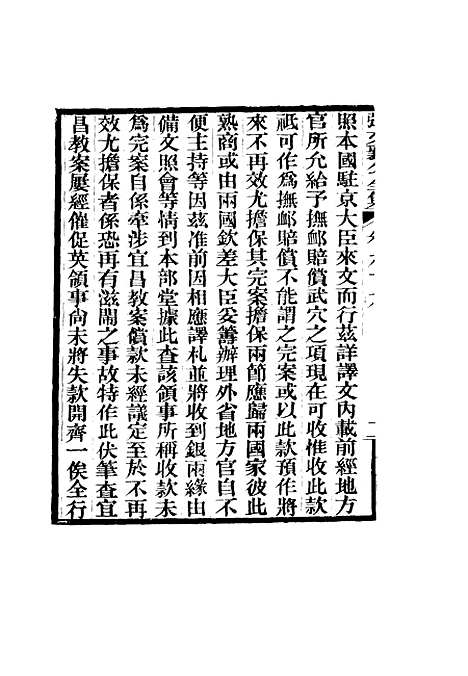 照本國駐京大臣來文而行茲詳譯文內載前經地方
官所允給予撫䘏賠償武穴之項現在可收惟收此款
祗可作爲撫䘏賠償不能謂之完案或以此款預作將
來不再效尤擔保其完案擔保兩節應歸兩國家彼此
熟商或由兩國欽差大臣妥籌辦理外省地方官自不
便主持等因茲准前因相應譯札並將收到銀兩緣由
備文照會等情到本部堂據此查該領事所稱收款未
爲完案自係牽涉宜昌教案償款未經議定至於不再
效尤擔保者係恐再有滋鬧之事故特作此伏筆查宜
昌教案屢經催促英領事尙未將失款開齊一俟全行